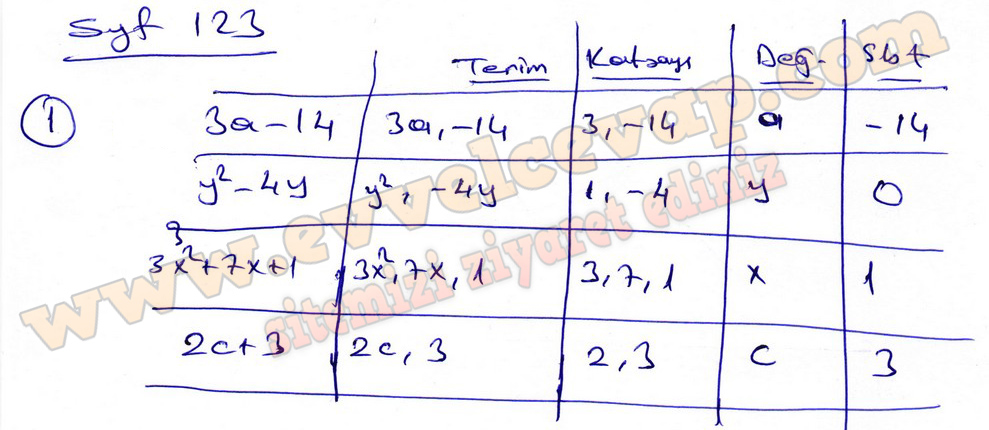 Syf 123
Terim Katsayı Değ. Sbt
1 3a-14 3a, -14 3, -14 a -14
y²-4y y², -4y 1, -4 y 0
3x²+7x+1 3x², 7x, 1 3, 7, 1 x 1
2c+3 2c, 3 2, 3 c 3
www.evvelcevap.com
sitemizi ziyaret ediniz